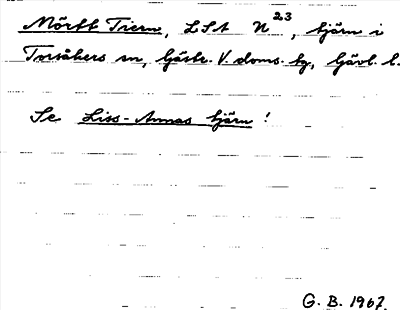 Mörtt Tiern, LSA N 23, tjärn i
Torsåkers sn, Gästr. V. doms. tg, Gävl. l.
Se Liss-Annas tjärn!
G. B. 1967.